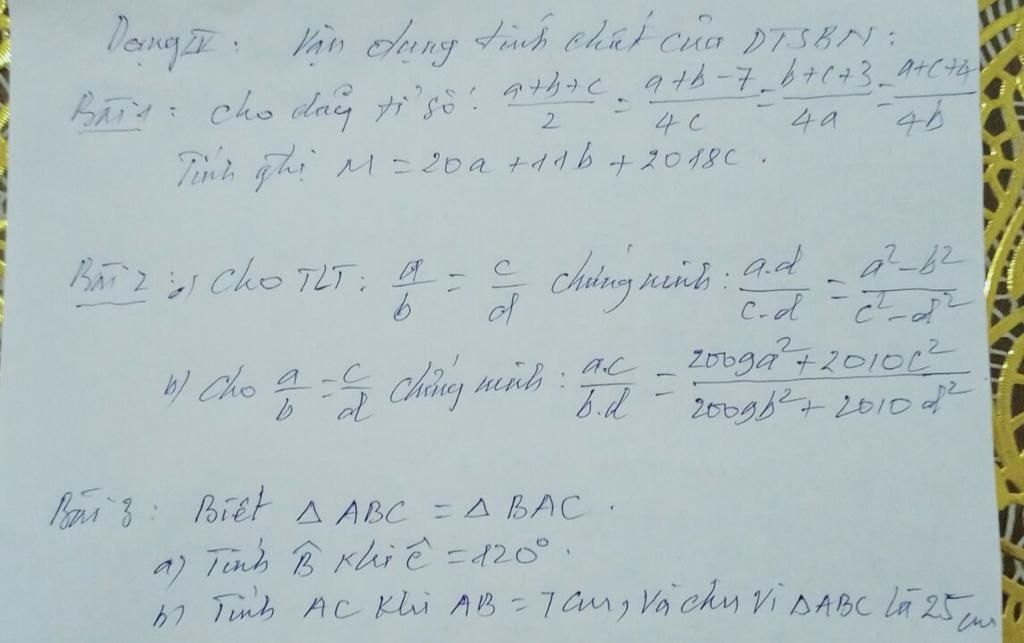 Dạng IV: Vận dụng tính chất của DTSBN:
Bài 1: Cho dãy tỉ số: (a+b+c)/2 = (a+b-7)/4c = (b+c+3)/4a = (a+c+4)/4b
Tính ghị M = 20a + 11b + 2018c.
Bài 2: a) Cho TLT: a/b = c/d chứng minh: a.d/c.d = (a²-b²)/(c²-d²)
b) Cho a/b = c/d chứng minh: a.c/b.d = (2009a²+2010c²)/(2009b²+2010d²)
Bài 3: Biết Δ ABC = Δ BAC.
a) Tính B̂ khi Ĉ = 120°.
b) Tính AC khi AB = 7cm, và chu vi ΔABC là 25cm